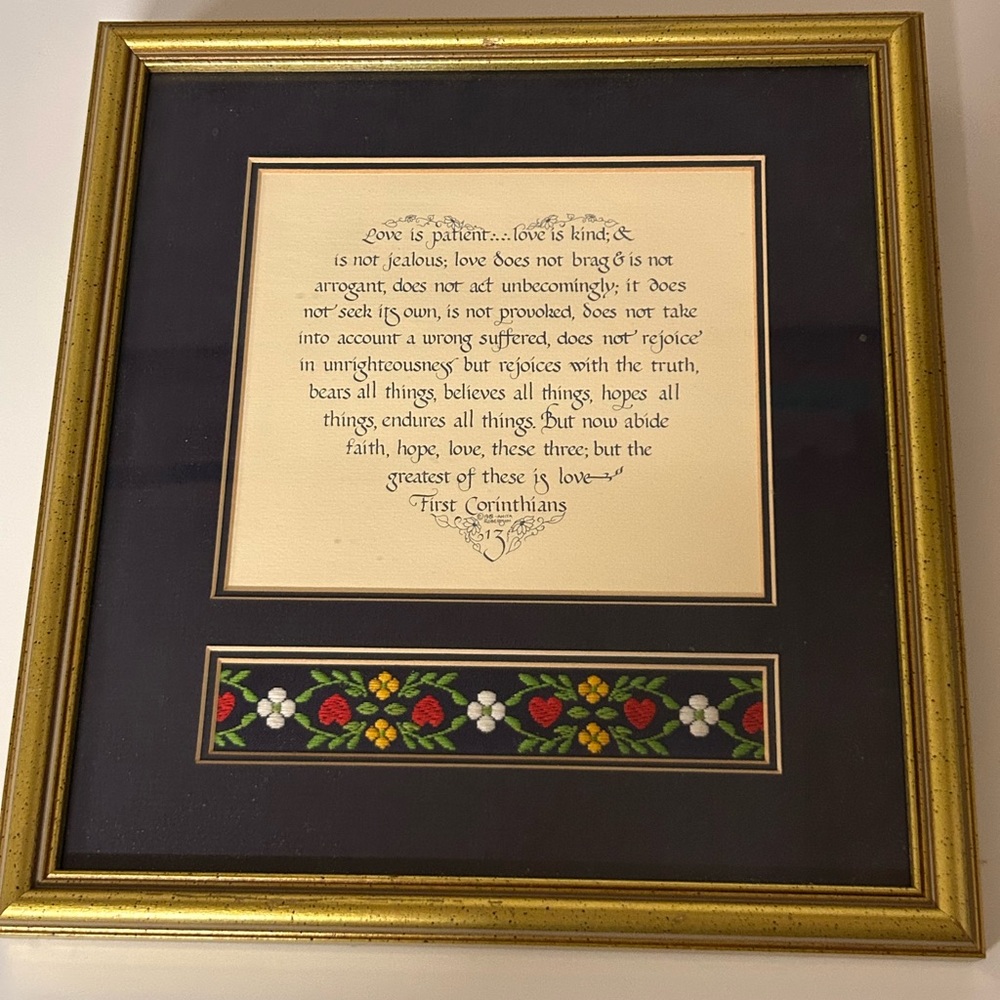 Love is patient:...love is kind; &
is not jealous; love does not brag & is not
arrogant, does not act unbecomingly; it does
not seek its own, is not provoked, does not take
into account a wrong suffered, does not rejoice
in unrighteousness but rejoices with the truth,
bears all things, believes all things, hopes all
things, endures all things. But now abide
faith, hope, love, these three; but the
greatest of these is love
First Corinthians
13